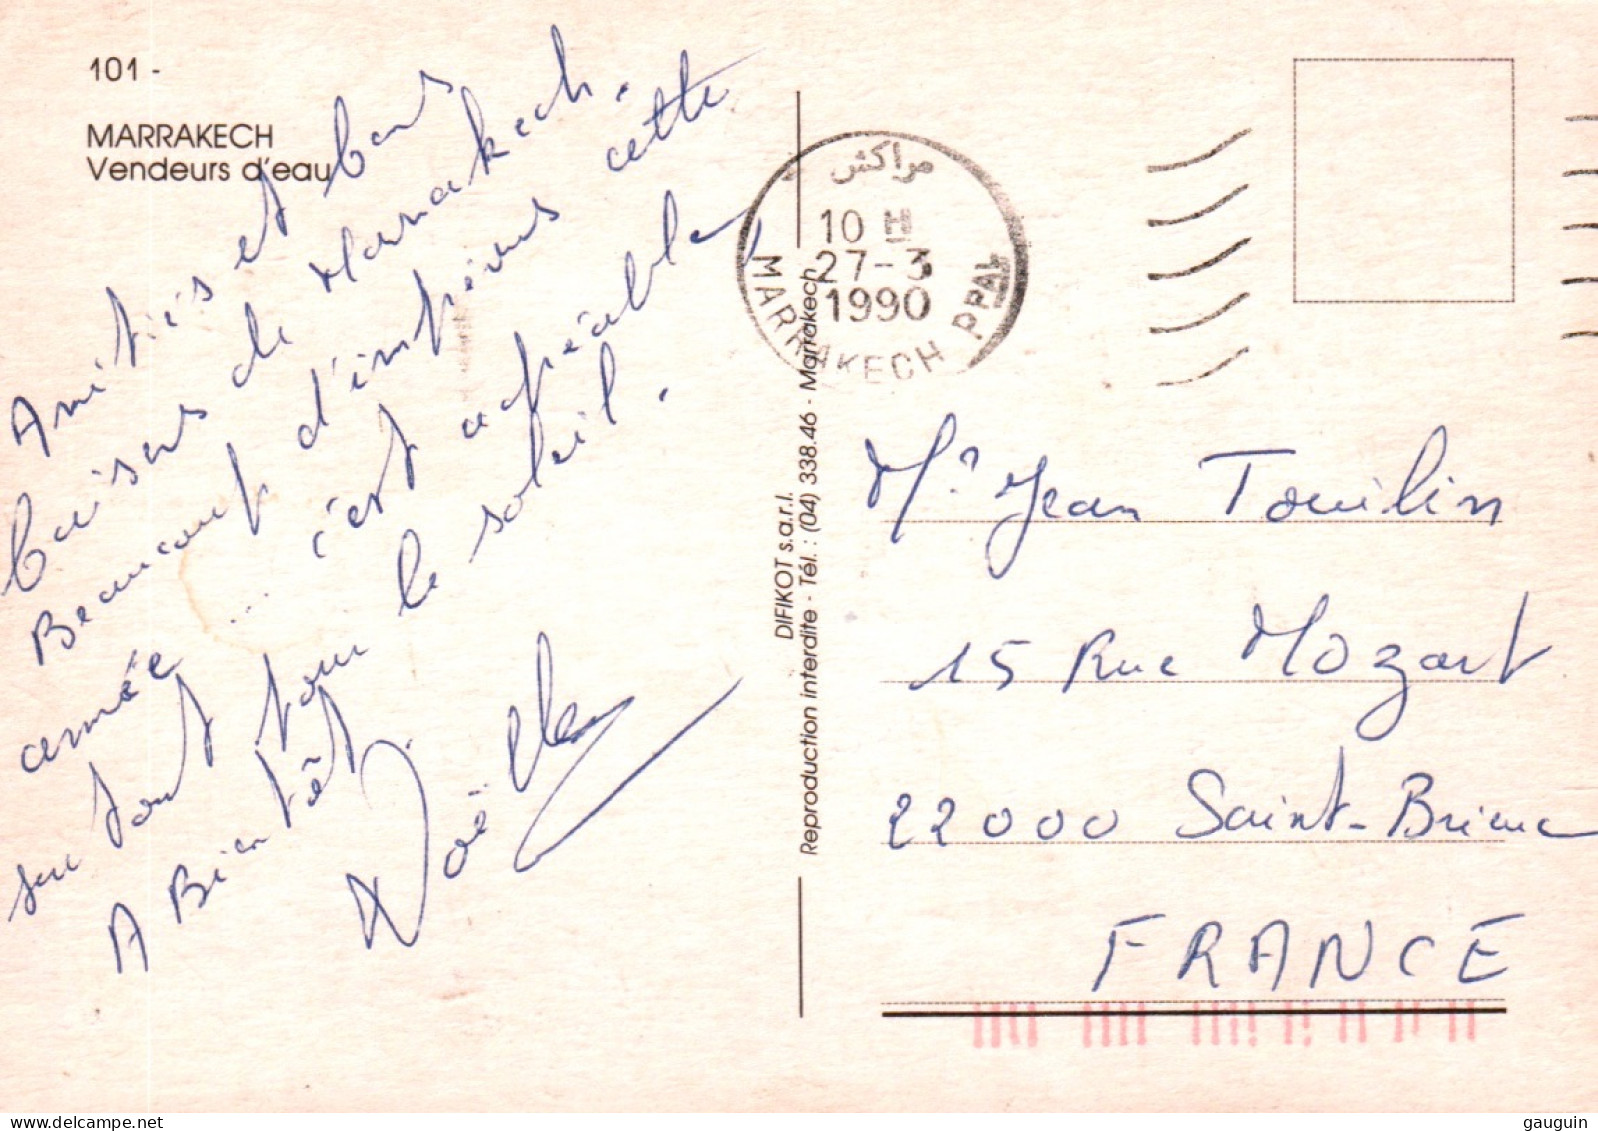 101 -
MARRAKECH
Vendeurs d'eau
Amitiés et bons
baisers de Marrakech.
Beaucoup d'imprévus cette
année ... c'est agréable,
surtout pour le soleil.
A Bientôt
Noëlle
DIFIKOT s.a.r.l.
Reproduction interdite - Tél. : (04) 338.46 - Marrakech
مراكش
10 H
27-3
1990
MARRAKECH PPAL
Mr Jean Touilin
15 Rue Mozart
22000 Saint-Brieuc
FRANCE
delcampe.net
gauguin